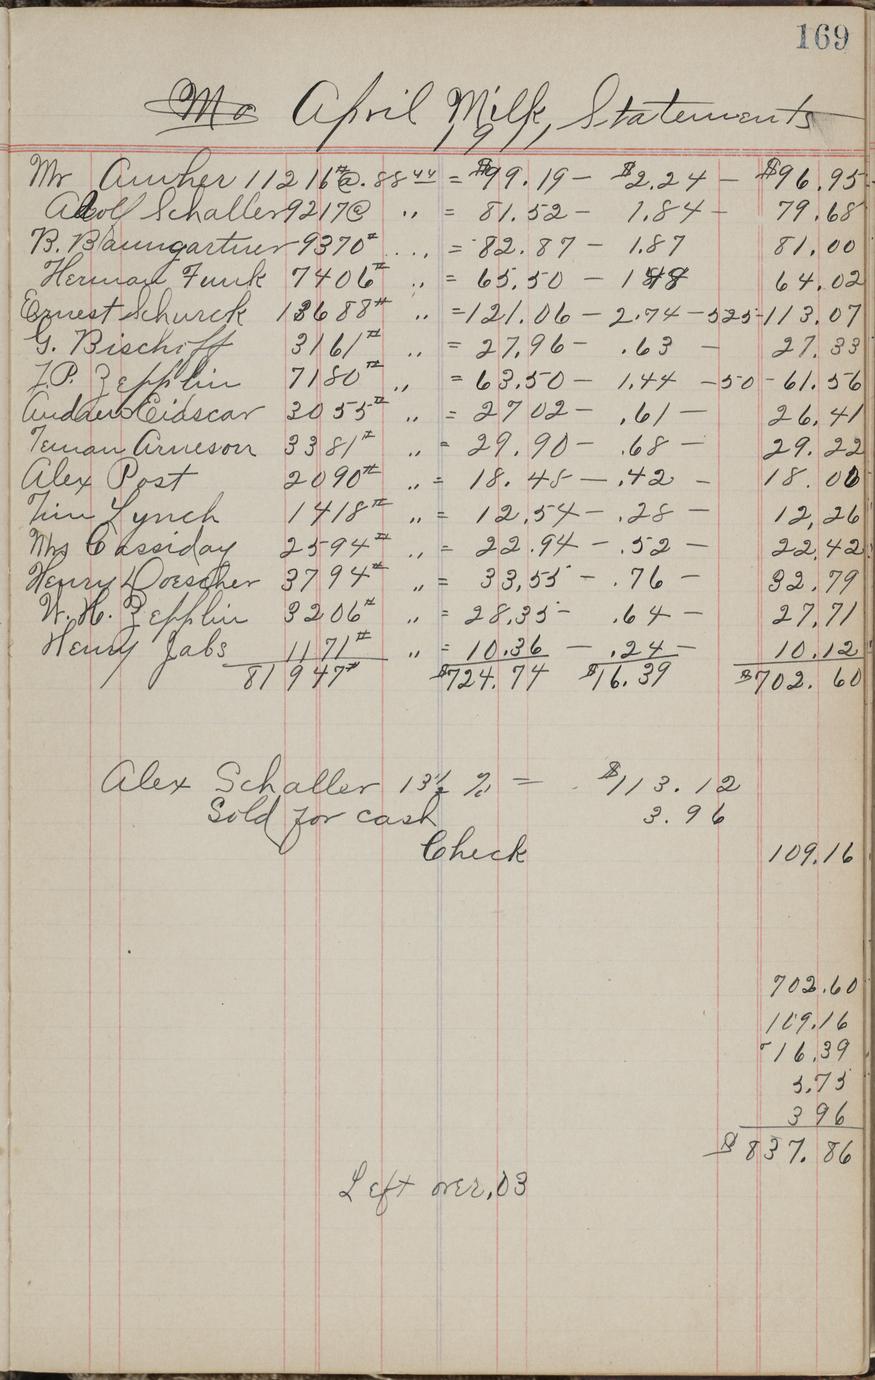 169
Mo April Milk Statements
1911,
Mr Amher 11216# @ .88 44 = $99.19 - $2.24 - $96.95
Adolf Schaller 9217 @ " = 81.52 - 1.84 - 79.68
B. Baumgartner 9370# " = 82.87 - 1.87 81.00
Herman Funk 7406# " = 65.50 - 1.48 64.02
Ernest Schurck 13688# " = 121.06 - 2.74 - 525 - 113.07
G. Bischoff 3161# " = 27.96 - .63 - 27.33
J.P. Zepplin 7180# " = 63.50 - 1.44 - 50 - 61.56
Eidscar 3055# " = 27 02 - .61 - 26.41
Arneson 3381# " = 29.90 - .68 - 29.22
Alex Post 2090# " = 18.48 - .42 - 18.06
Tim Lynch 1418# " = 12.54 - .28 - 12,26
Mrs Cassiday 2594# " = 22.94 - .52 - 22.42
Henry Doescher 3794# " = 33,55 - .76 - 32.79
W. H. Zepplin 3206# " = 28.35 - .64 - 27.71
Henry Jabs 1171# " = 10.36 - .24 - 10.12
81947# $724.74 $16.39 $702.60
Alex Schaller 13½ % = $113.12
Sold for cash 3.96
Check 109.16
702.60
109.16
16.39
5.75
3 96
$837.86
Left over .03